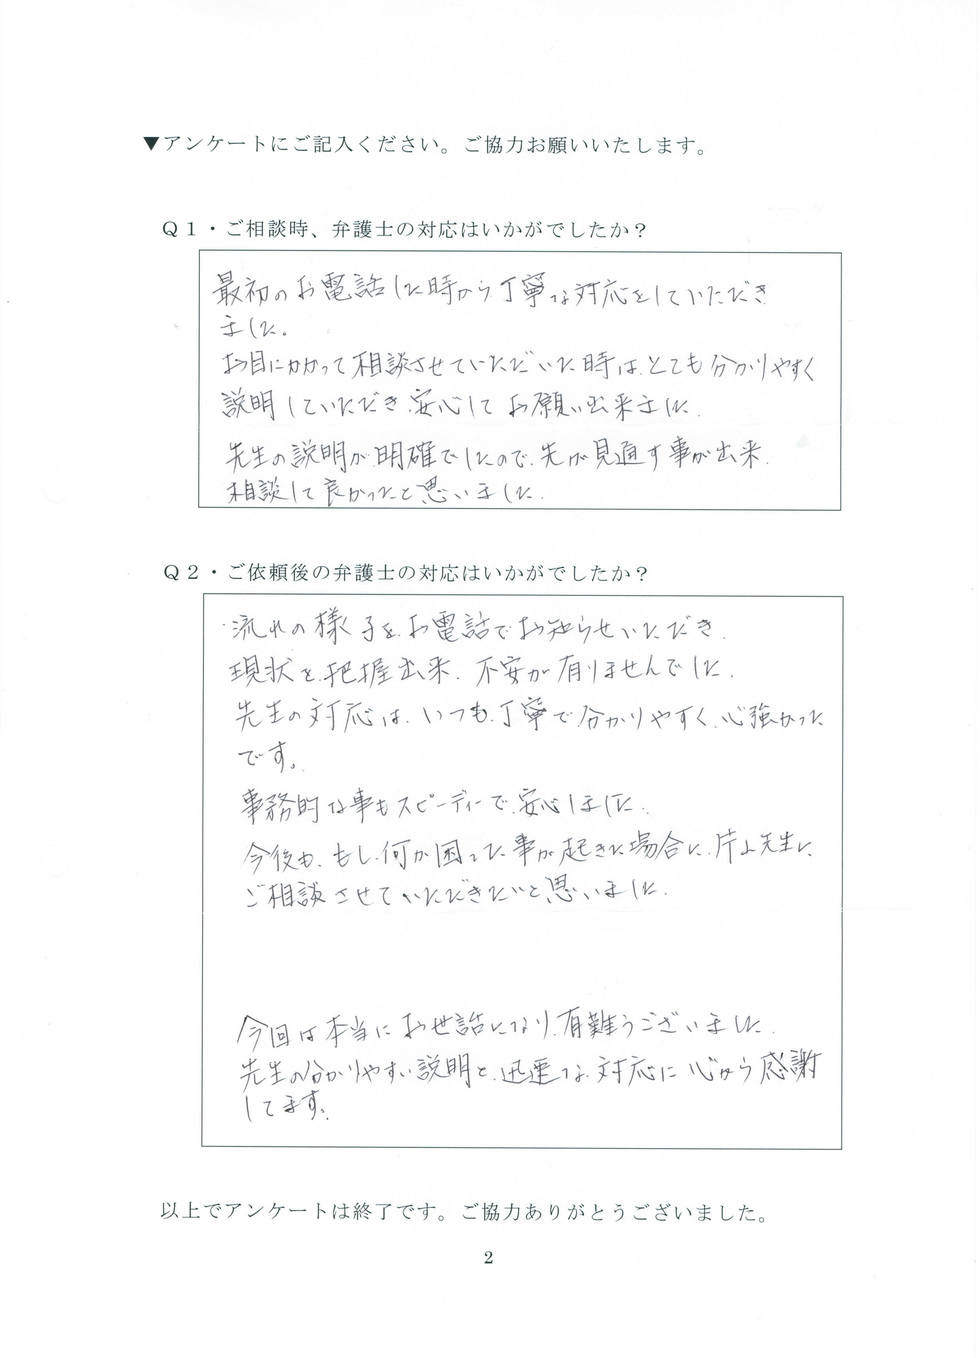 ▼アンケートにご記入ください。ご協力お願いいたします。
Ｑ１・ご相談時、弁護士の対応はいかがでしたか？
最初のお電話した時から丁寧な対応をしていただき
ました。
お目にかかって相談させていただいた時は、とても分かりやすく
説明していただき、安心してお願い出来ました。
先生の説明が、明確でしたので、先が見通す事が出来、
相談して良かったと思いました。
Ｑ２・ご依頼後の弁護士の対応はいかがでしたか？
流れの様子を、お電話でお知らせいただき、
現状を、把握出来、不安が有りませんでした。
先生の対応は、いつも、丁寧で分かりやすく、心強かった
です。
事務的な事もスピーディーで、安心しました。
今後も、もし、何か困った事が起きた場合に、片山先生に、
ご相談させていただきたいと思いました。
今回は本当にお世話になり、有難うございました。
先生の分かりやすい説明と、迅速な対応に心から感謝
してます。
以上でアンケートは終了です。ご協力ありがとうございました。
2